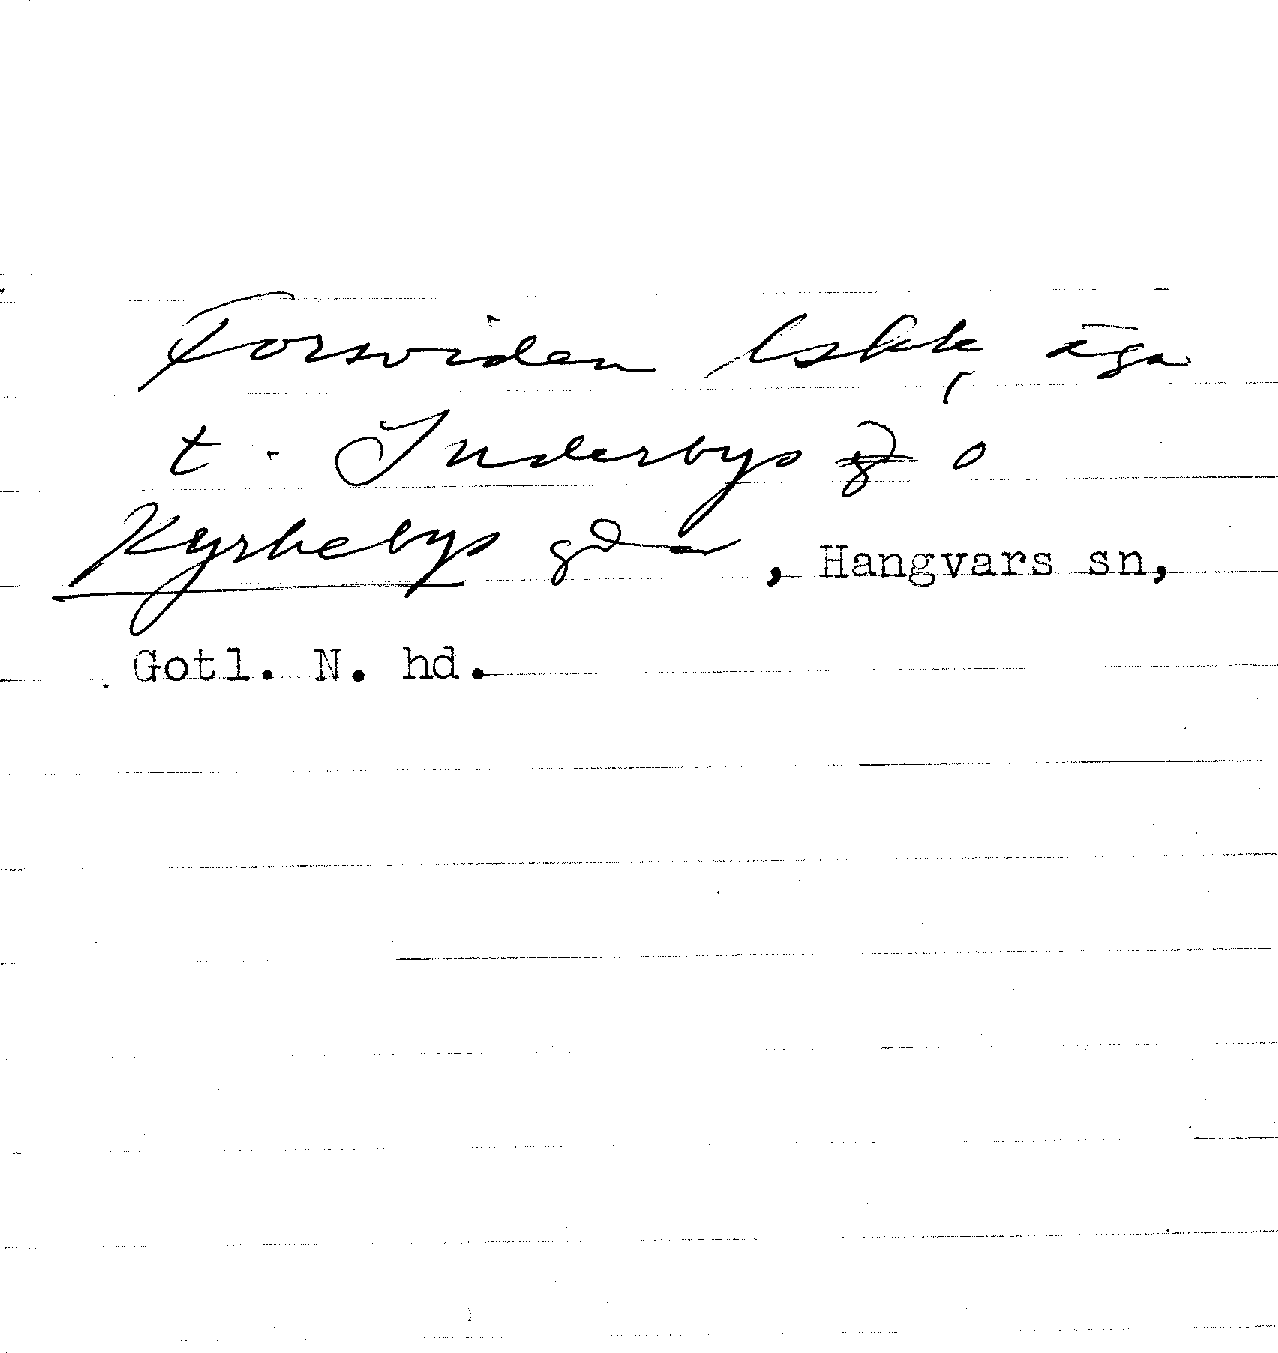 Forsviden lskk, äga
t. Inderbys o
Kyrkebys gdar, Hangvars sn,
Gotl. N. hd.